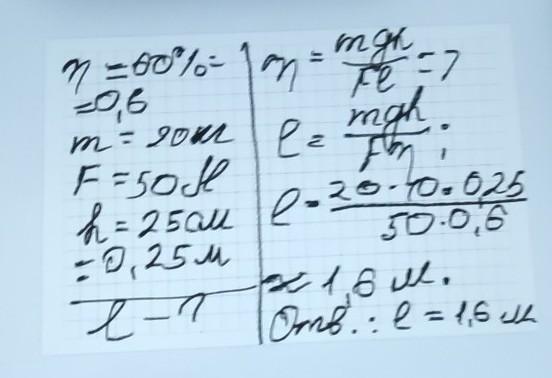 η = 60% =
= 0,6
m = 20 кг
F = 50 Н
h = 25 см
= 0,25 м
l - ?
η = mgh / Fl => 
l = mgh / Fη ;
l = 20·10·0,25 / 50·0,6
≈ 1,6 м.
Отв.: l = 1,6 м